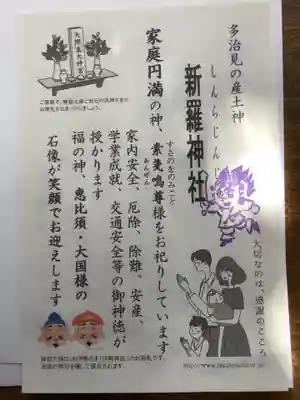 多治見の産土神
しんらじんじゃ
新羅神社
すさのをのみこと
家庭円満の神、素戔嗚尊様をお祀りしています
家内安全、厄除、除難、安産、
あんざん
学業成就、交通安全等の御神徳が
授かります
福の神、恵比須・大国様の
石像が笑顔でお迎えします
大切なのは、感謝のこころ
天照皇大神宮